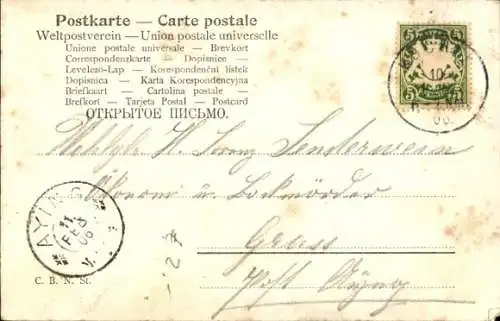 Postkarte — Carte postale
Weltpostverein — Union postale universelle
Unione postale universale — Brevkort
Correspondenzkarte — Dopisnice —
Levelező-Lap — Korespondenční listek
Dopisnica — Karta Korespondencyjna
Briefkaart — Cartolina postale —
Brefkort — Tarjeta Postal — Postcard
ОТКРЫТОЕ ПИСЬМО.
5 5
5 5
10
06.
H. Lorenz
Ökonom u.
Grass
Post Aying
AYING
11.
FEB
06
C. B. N. St.